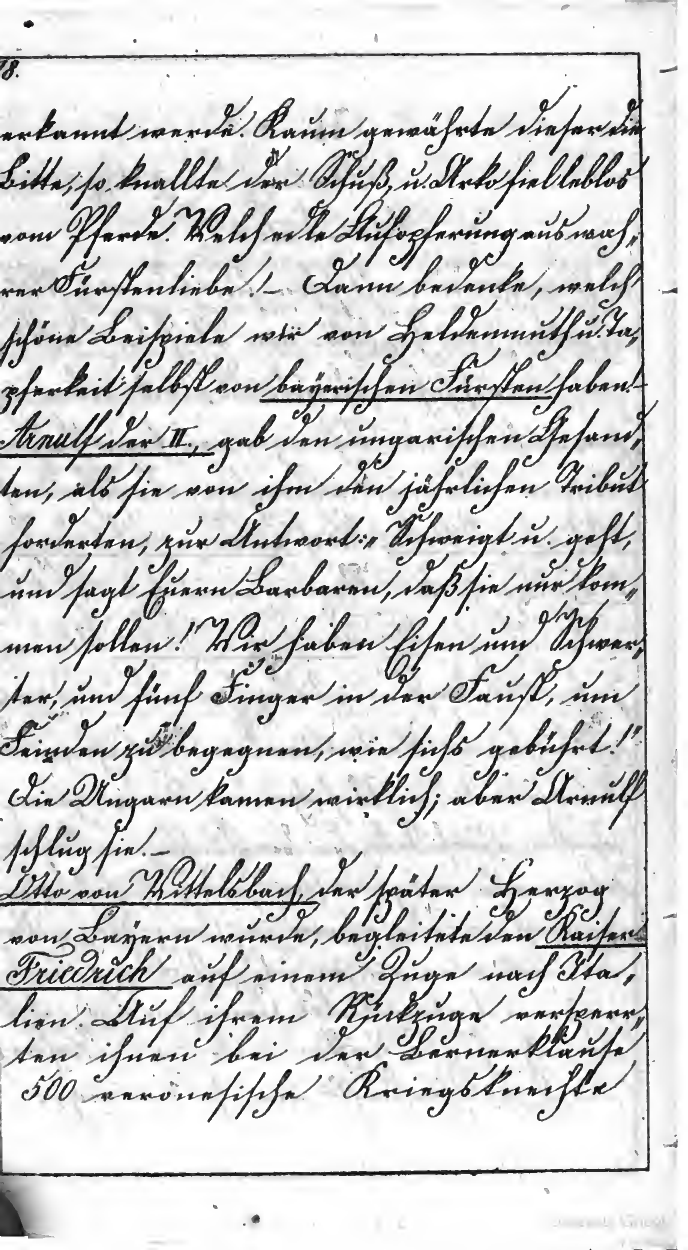 18.
erkannt werde. Kaum gewährte dieser die
Bitte, so knallte der Schuß, u. Arko fiel leblos
vom Pferde. Welch edle Aufopferung aus wah„
rer Fürstenliebe! – Dann bedenke, welch
schöne Beispiele wir von Heldenmuth u. Ta„
pferkeit selbst von bayerischen Fürsten haben! –
Arnulf der II., gab den ungarischen Gesand„
ten, als sie von ihm den jährlichen Tribut
forderten, zur Antwort: „Schweigt u. geht,
und sagt Euern Barbaren, daß sie nur kom„
men sollen! Wir haben Eisen und Schwer„
ter, und fünf Finger in der Faust, um
Feinden zu begegnen, wie sichs gebührt!"
Die Ungarn kamen wirklich; aber Arnulf
schlug sie. –
Otto von Wittelsbach, der später Herzog
von Bayern wurde, begleitete den Kaiser
Friedrich auf einem Zuge nach Ita„
lien. Auf ihrem Rückzuge versperr„
ten ihnen bei der Bernerklause
500 veronesische Kriegsknechte